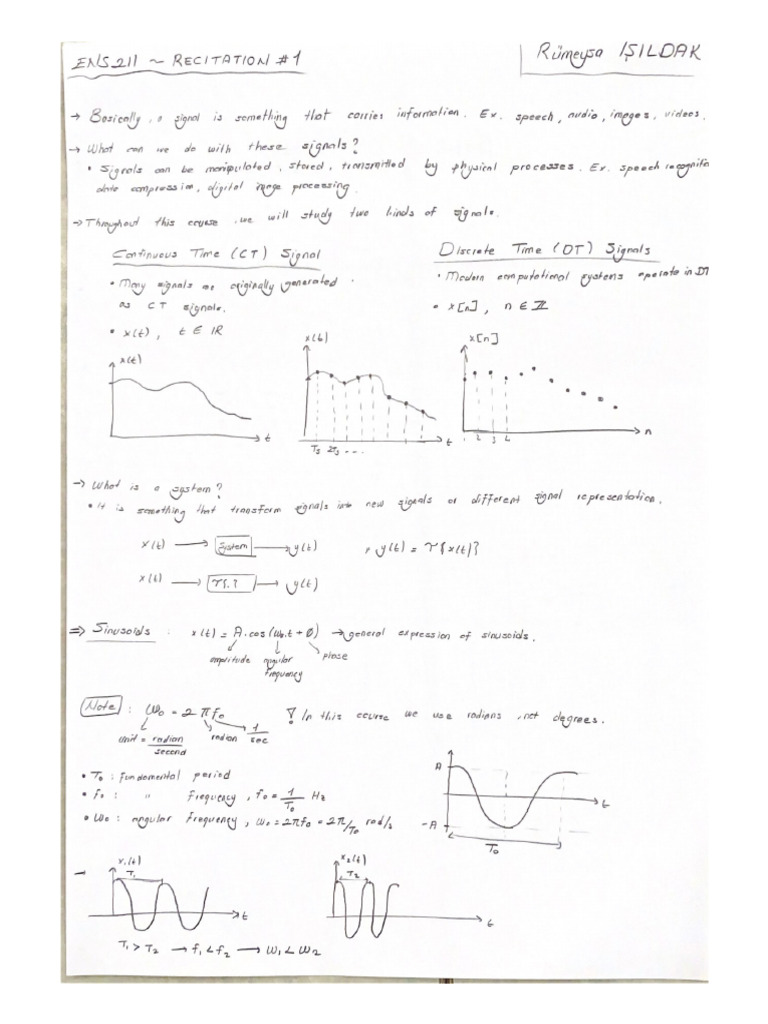 ENS 211 ~ RECITATION #1
Rümeysa IŞILDAK
→ Basically, a signal is something that carries information. Ex. speech, audio, images, videos.
→ What can we do with these signals?
• Signals can be manipulated, stored, transmitted by physical processes. Ex. speech recognit
data compression, digital image processing.
→ Throughout this course, we will study two kinds of signals.
Continuous Time (CT) Signal
• Many signals are originally generated
as CT signals.
• x(t), t ∈ ℝ
Discrete Time (DT) Signals
• Modern computational systems operate in DT
• x[n], n ∈ ℤ
x(t)
t
x(t)
Ts 2Ts ...
t
x[n]
2 3 4
n
→ What is a system?
• It is something that transform signals into new signals or different signal representation.
x(t) → System → y(t) , y(t) = T{x(t)}
x(t) → T{.} → y(t)
⇒ Sinusoids : x(t) = A.cos(ω₀.t + Ø) → general expression of sinusoids.
amplitude angular frequency phase
Note : ω₀ = 2πf₀ ! In this course we use radians, not degrees.
unit = radian/second radian 1/sec
• T₀ : fundamental period
• f₀ : " frequency, f₀ = 1/T₀ Hz
• ω₀ : angular frequency, ω₀ = 2πf₀ = 2π/T₀ rad/s
A
-A
T₀
t
x₁(t)
T₁
t
x₂(t)
T₂
t
T₁ > T₂ → f₁ < f₂ → ω₁ < ω₂